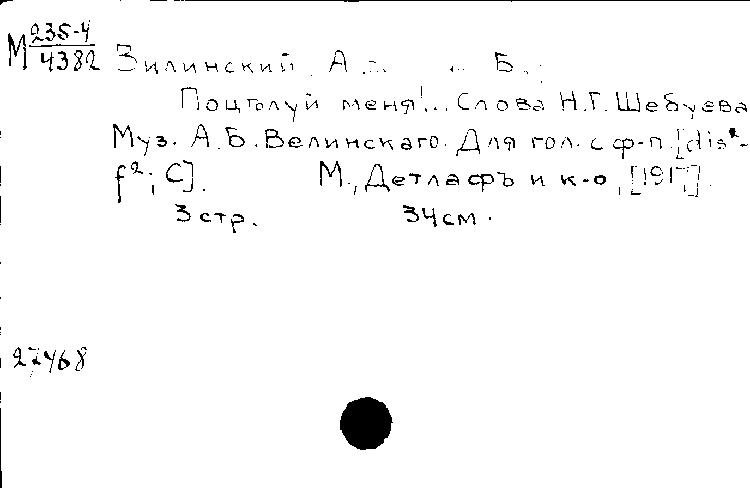 М 235-4
4382
Зилинский А. Б.
Поцҍлуй меня!.. Слова Н.Г. Шебуева
Муз. А.Б. Велинскаго. Для гол. с ф-п. [dis¹-
f²; C]. М., Детлафъ и к-о, [1917].
3 стр. 34 см.
27468